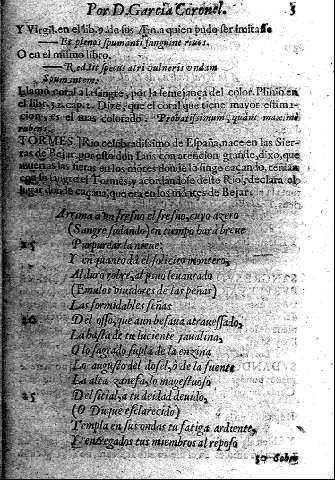 Por D. Garcia Coronel. 5
Y Virgil. en el lib. 9. de sus Æn. a quien pudo ser imitasse
Et plenos spumanti sanguine rivos.
O en el mismo libro.
Reddit specus atri vulneris undam
Spumantem.
Llamò coral a la sangre, por la semejança del color. Plinio en
el lib. 32. cap. 2. Dize, que el coral que tiene mayor estima-
cion, es el mas colorado. Probatissimum, quàm maximè
rubens.
TORMES.] Rio celebradissimo de España, nace en las Sier-
ras de Bejar, por esto don Luis con atencion grande, dixo, que
mueran las fieras en los mõtes donde la sigue caçando,
con la sangre el Tormes, y acordandose deste Rio, declara el
lugar donde caçaua, que era en los mõtes de Bejar.
Arrima a vn fresno el fresno, cuyo azero
(Sangre sudando) en tiempo harà breue
15 Purpurear la nieue:
Y en quanto dà el solicito montero,
Al duro robre, al pino leuantado
(Emulos viuidores de las peñas)
Las formidables señas
20 Del osso, que aun besaua atrauessado,
La hasta de tu luciente jaualina,
O lo sagrado supla de la enzina
Lo augusto del dosel, ò de la fuente
La alta zanefa, lo magestuoso
25 Del sitial, a tu deidad deuido,
(O Duque esclarecido)
Templa en sus ondas tu fatiga ardiente,
Y entregados tus miembros al reposo
Sobre